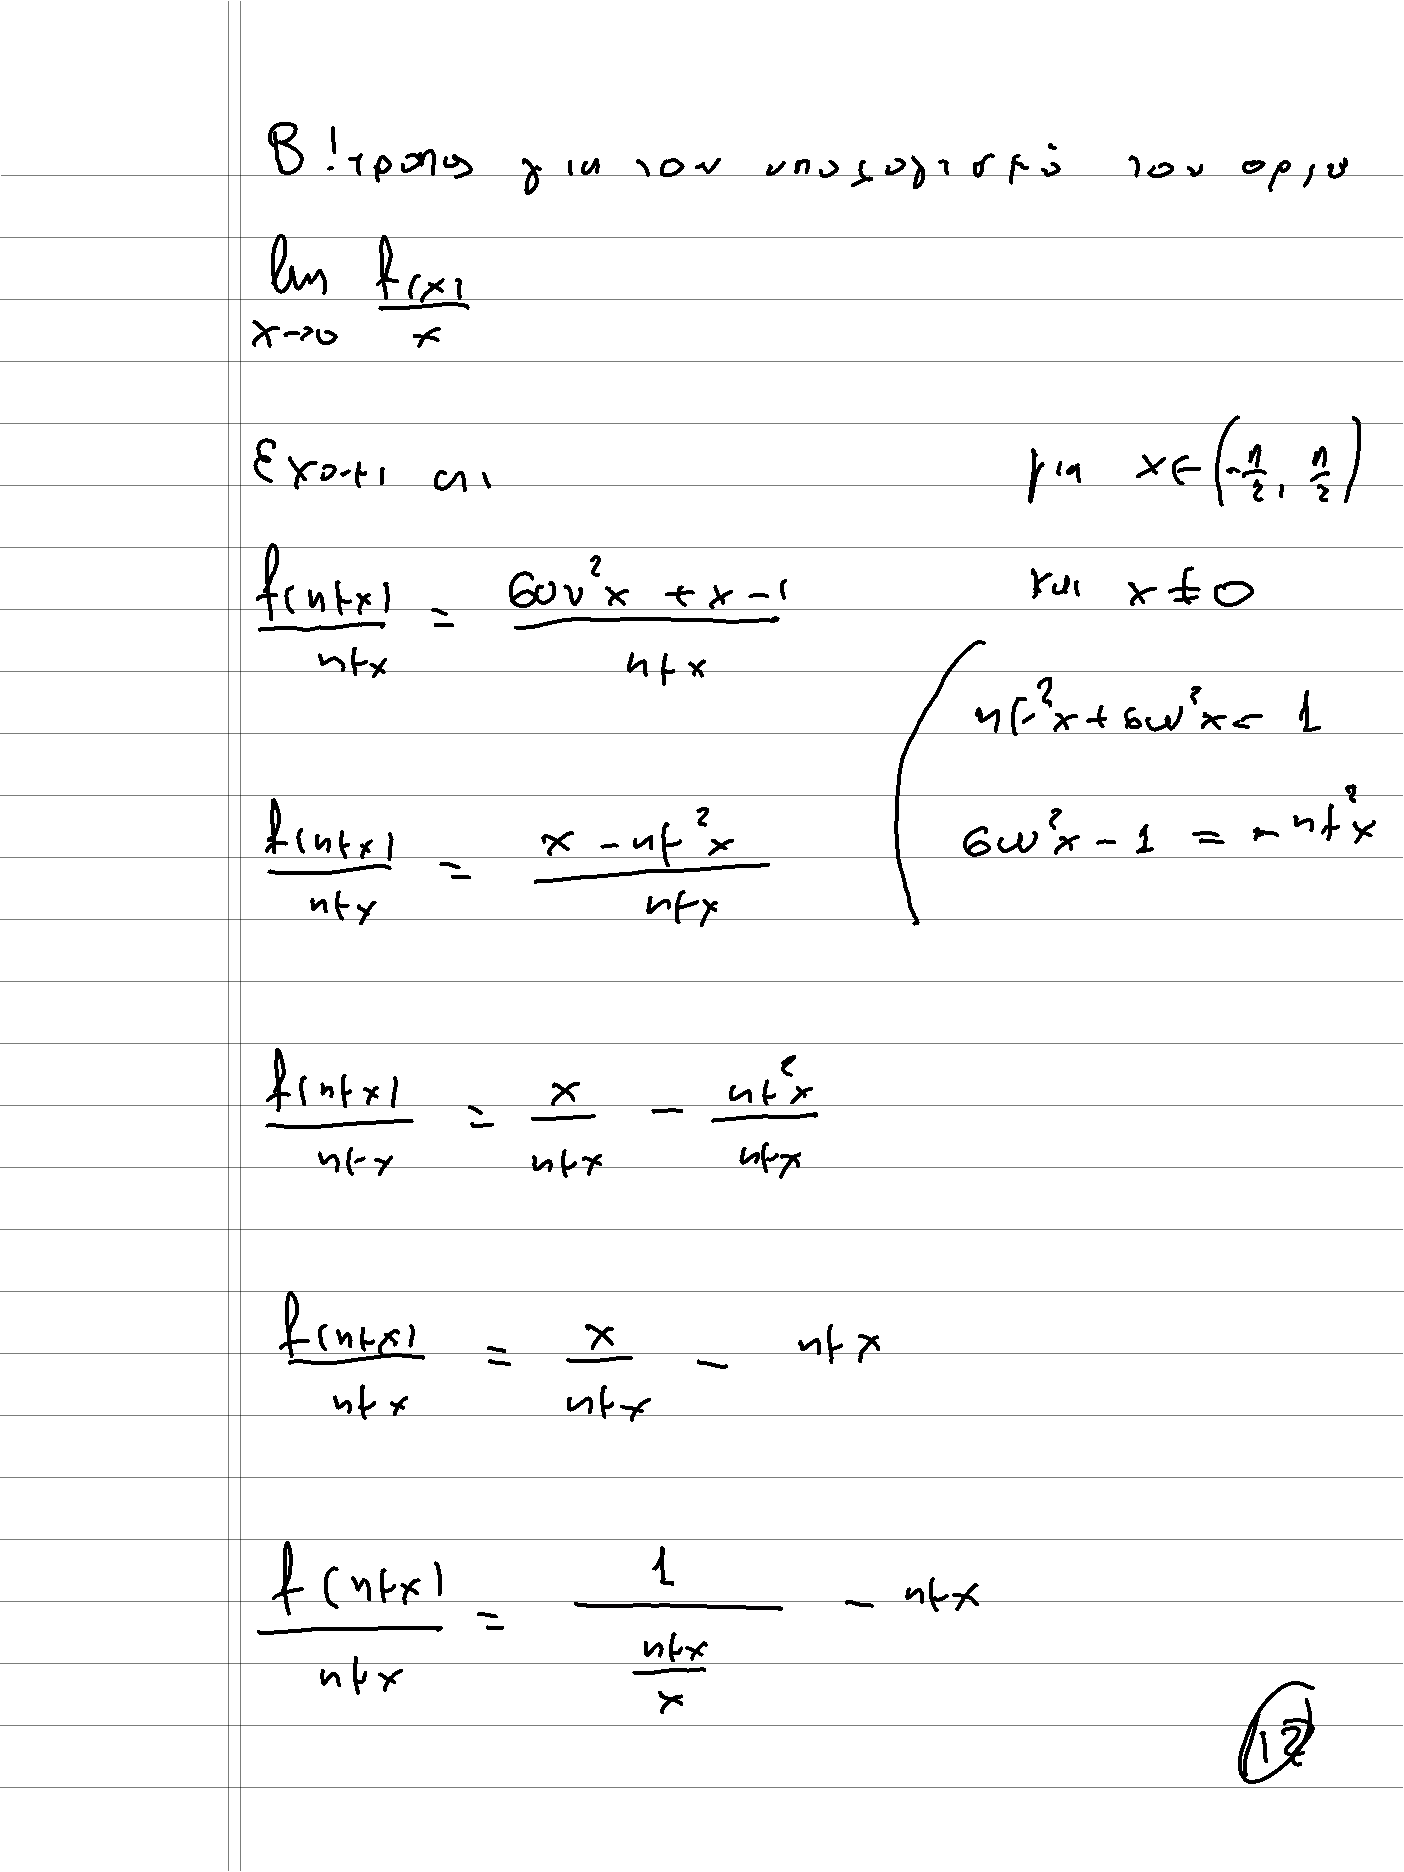 Β! τροπος για τον υπολογισμό του οριου
lim f(x)/x
x→0
Εχουμε οτι για x∈(-π/2, π/2)
f(ημx)/ημx = (συν²x + x - 1)/ημx και x ≠ 0
ημ²x + συν²x = 1
f(ημx)/ημx = (x - ημ²x)/ημx συν²x - 1 = - ημ²x
f(ημx)/ημx = x/ημx - ημ²x/ημx
f(ημx)/ημx = x/ημx - ημx
f(ημx)/ημx = 1/(ημx/x) - ημx
12